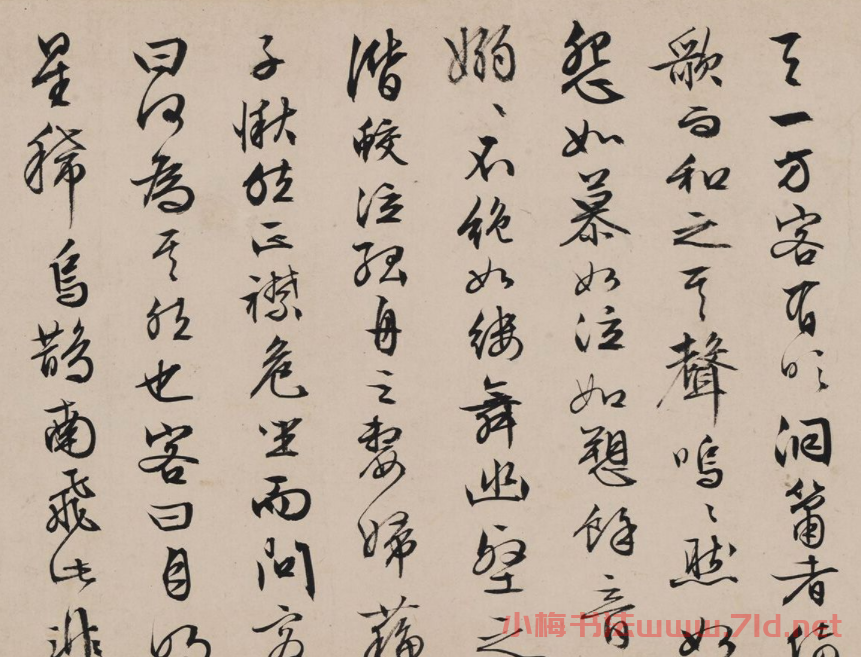 天一方客有吹洞簫者倚
歌而和之其聲嗚〻然如
怨如慕如泣如愬餘音
嫋〻不絕如縷舞幽壑之
潛蛟泣孤舟之嫠婦蘇
子愀然正襟危坐而問客
曰何為其然也客曰月明
星稀烏鵲南飛此非
小梅书法www.7ld.net